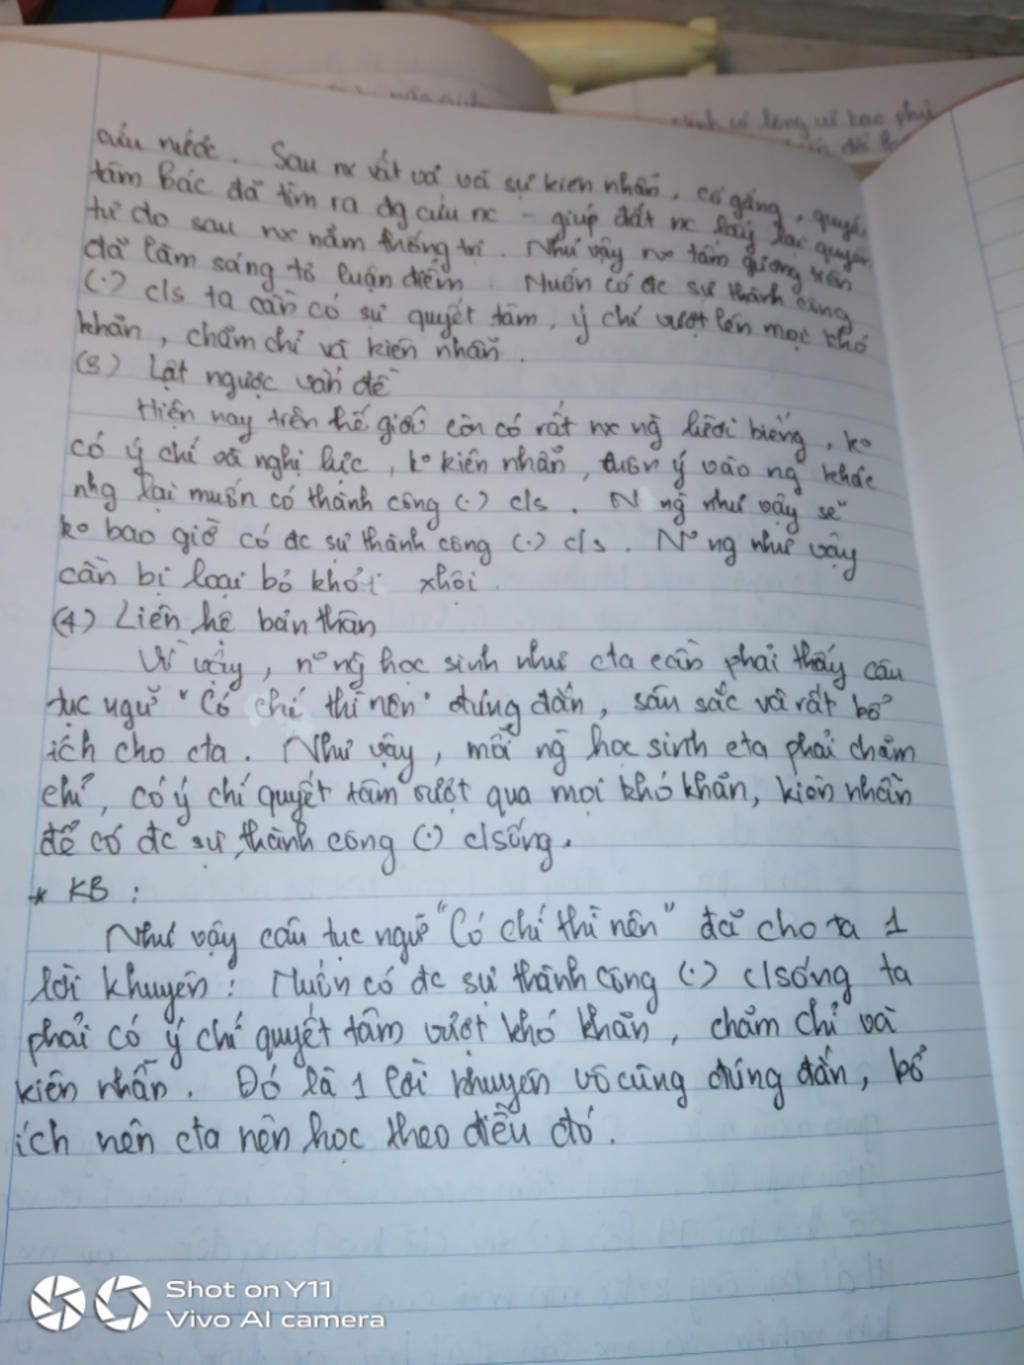 cứu nước. Sau nx vất vả với sự kiên nhẫn, cố gắng, quyết
tâm Bác đã tìm ra đg cứu nc - giúp đất nc lấy lại quyền
tự do sau nx năm thống trị. Như vậy nx tấm gương trên
đã làm sáng tỏ luận điểm. Muốn có đc sự thành công
(.) c/s ta cần có sự quyết tâm, ý chí vượt lên mọi khó
khăn, chăm chỉ và kiên nhẫn.
(3) Lật ngược vấn đề
Hiện nay trên thế giới còn có rất nx ng lười biếng, ko
có ý chí và nghị lực, ko kiên nhẫn, ý vào ng khác
nhg lại muốn có thành công (.) c/s. N ng như vậy sẽ
ko bao giờ có đc sự thành công (.) c/s. N° ng như vậy
cần bị loại bỏ khỏi xhội.
(4) Liên hệ bản thân
Vì vậy, n° ng học sinh như cta cần phải thấy câu
tục ngữ "Có chí thì nên" đúng đắn, sâu sắc và rất bổ
ích cho cta. Như vậy, mỗi ng học sinh cta phải chăm
chỉ, có ý chí quyết tâm vượt qua mọi khó khăn, kiên nhẫn
để có đc sự thành công (.) c/sống.
* KB :
Như vậy câu tục ngữ "Có chí thì nên" đã cho ta 1
lời khuyên: Muốn có đc sự thành công (.) c/sống ta
phải có ý chí quyết tâm vượt khó khăn, chăm chỉ và
kiên nhẫn. Đó là 1 lời khuyên vô cùng đúng đắn, bổ
ích nên cta nên học theo điều đó.
Shot on Y11
Vivo AI camera